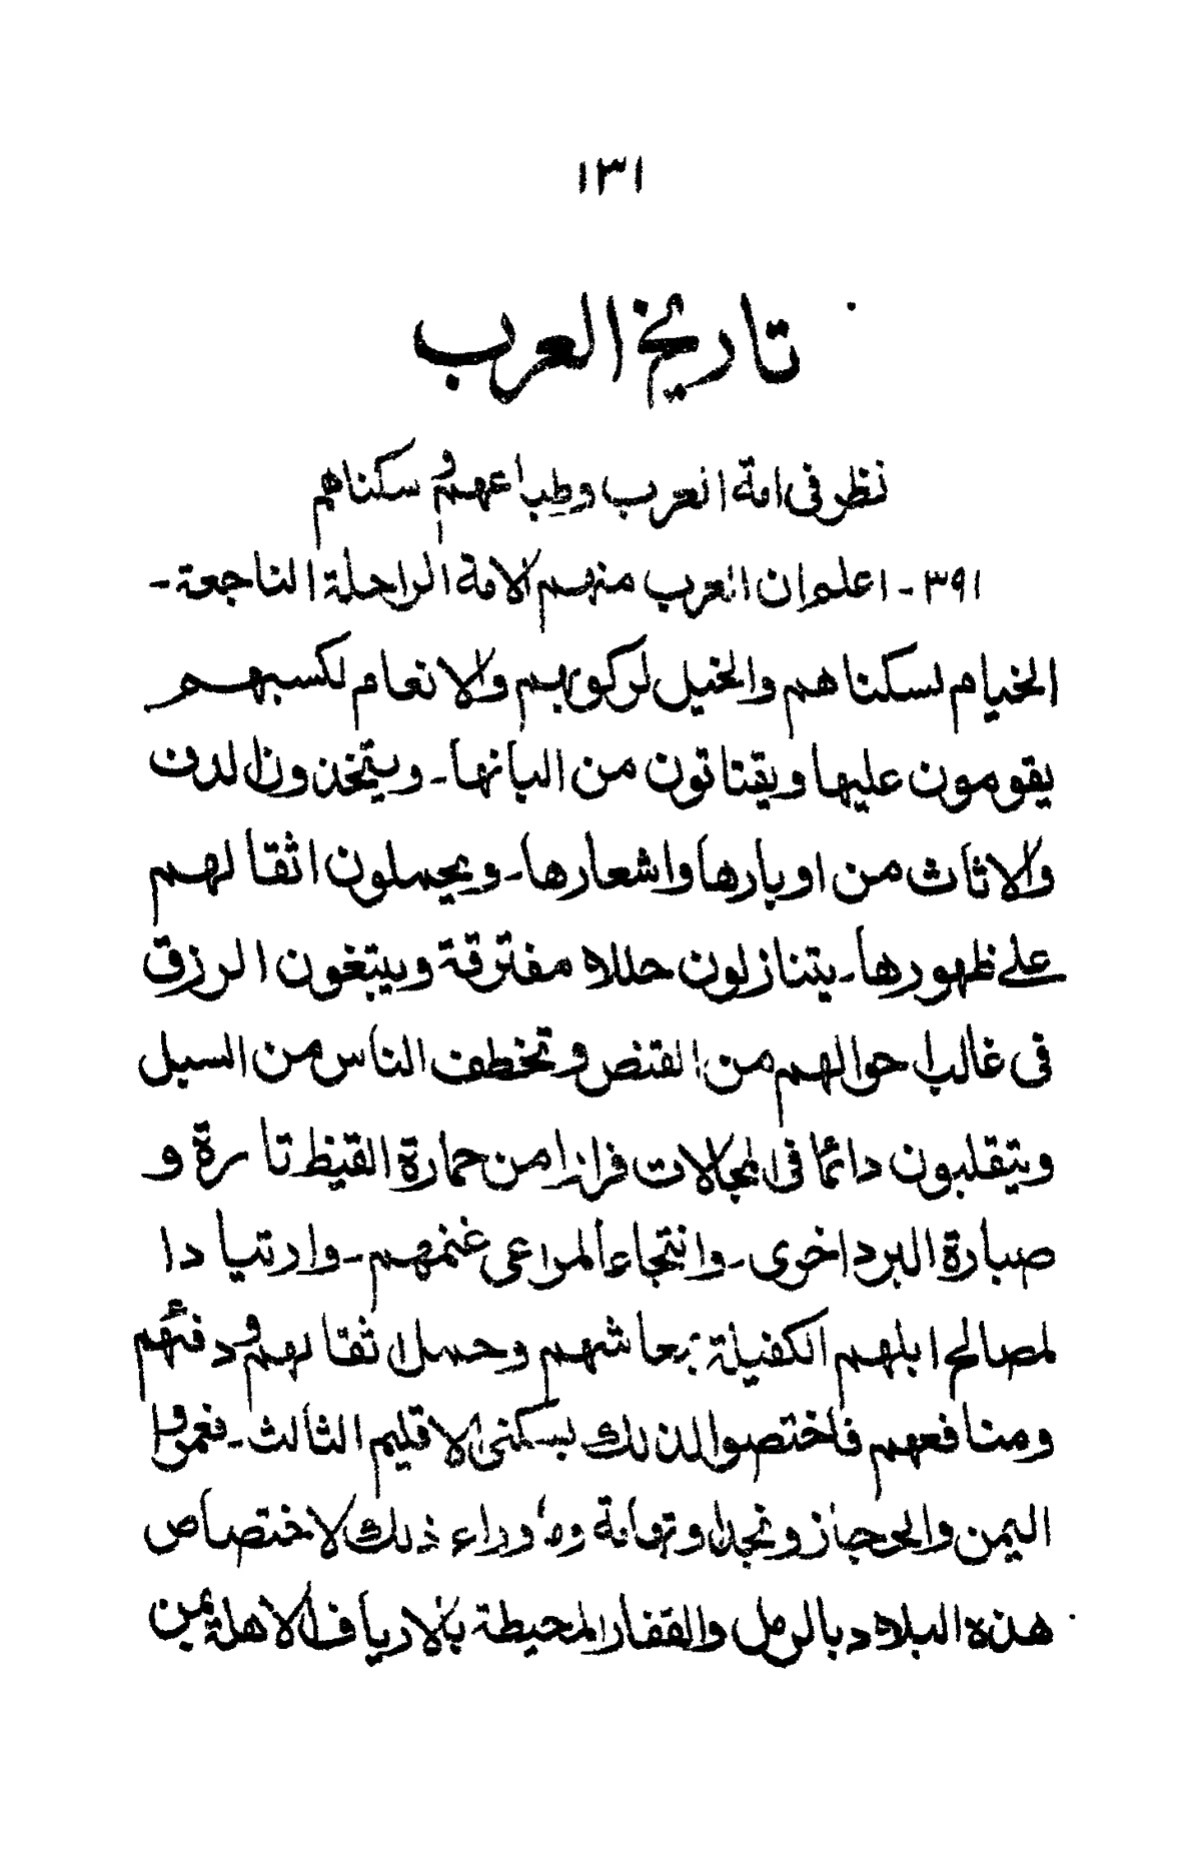 ١٣١
تاريخ العرب
نظر فى امة العرب وطباعهم و سكناهم
٣٩١ - اعلم ان العرب منهم الامة الراحلة الناجعة -
الخيام لسكناهم والخيل لركوبهم والانعام لكسبهم
يقومون عليها ويقتاتون من البانها - ويتخذون الدفء
والاثاث من اوبارها واشعارها - ويحملون اثقالهم
على ظهورها - يتنازلون حللا مفترقة ويبتغون الرزق
فى غالب احوالهم من القنص وتخطف الناس من السبل
ويتقلبون دائما فى المجالات فرارا من حمارة القيظ تارة و
صبارة البرد اخرى - وانتجاعا لمراعى غنمهم - وارتيادا
لمصالح ابلهم الكفيلة بمعاشهم وحمل اثقالهم و دفئهم
ومنافعهم فاختصوا لذلك بسكنى الاقليم الثالث - فعمروا
اليمن والحجاز ونجدا وتهامة وما وراء ذلك لاختصاص
هذه البلاد بالرمل والقفار المحيطة بالارياف الآهلة بمن